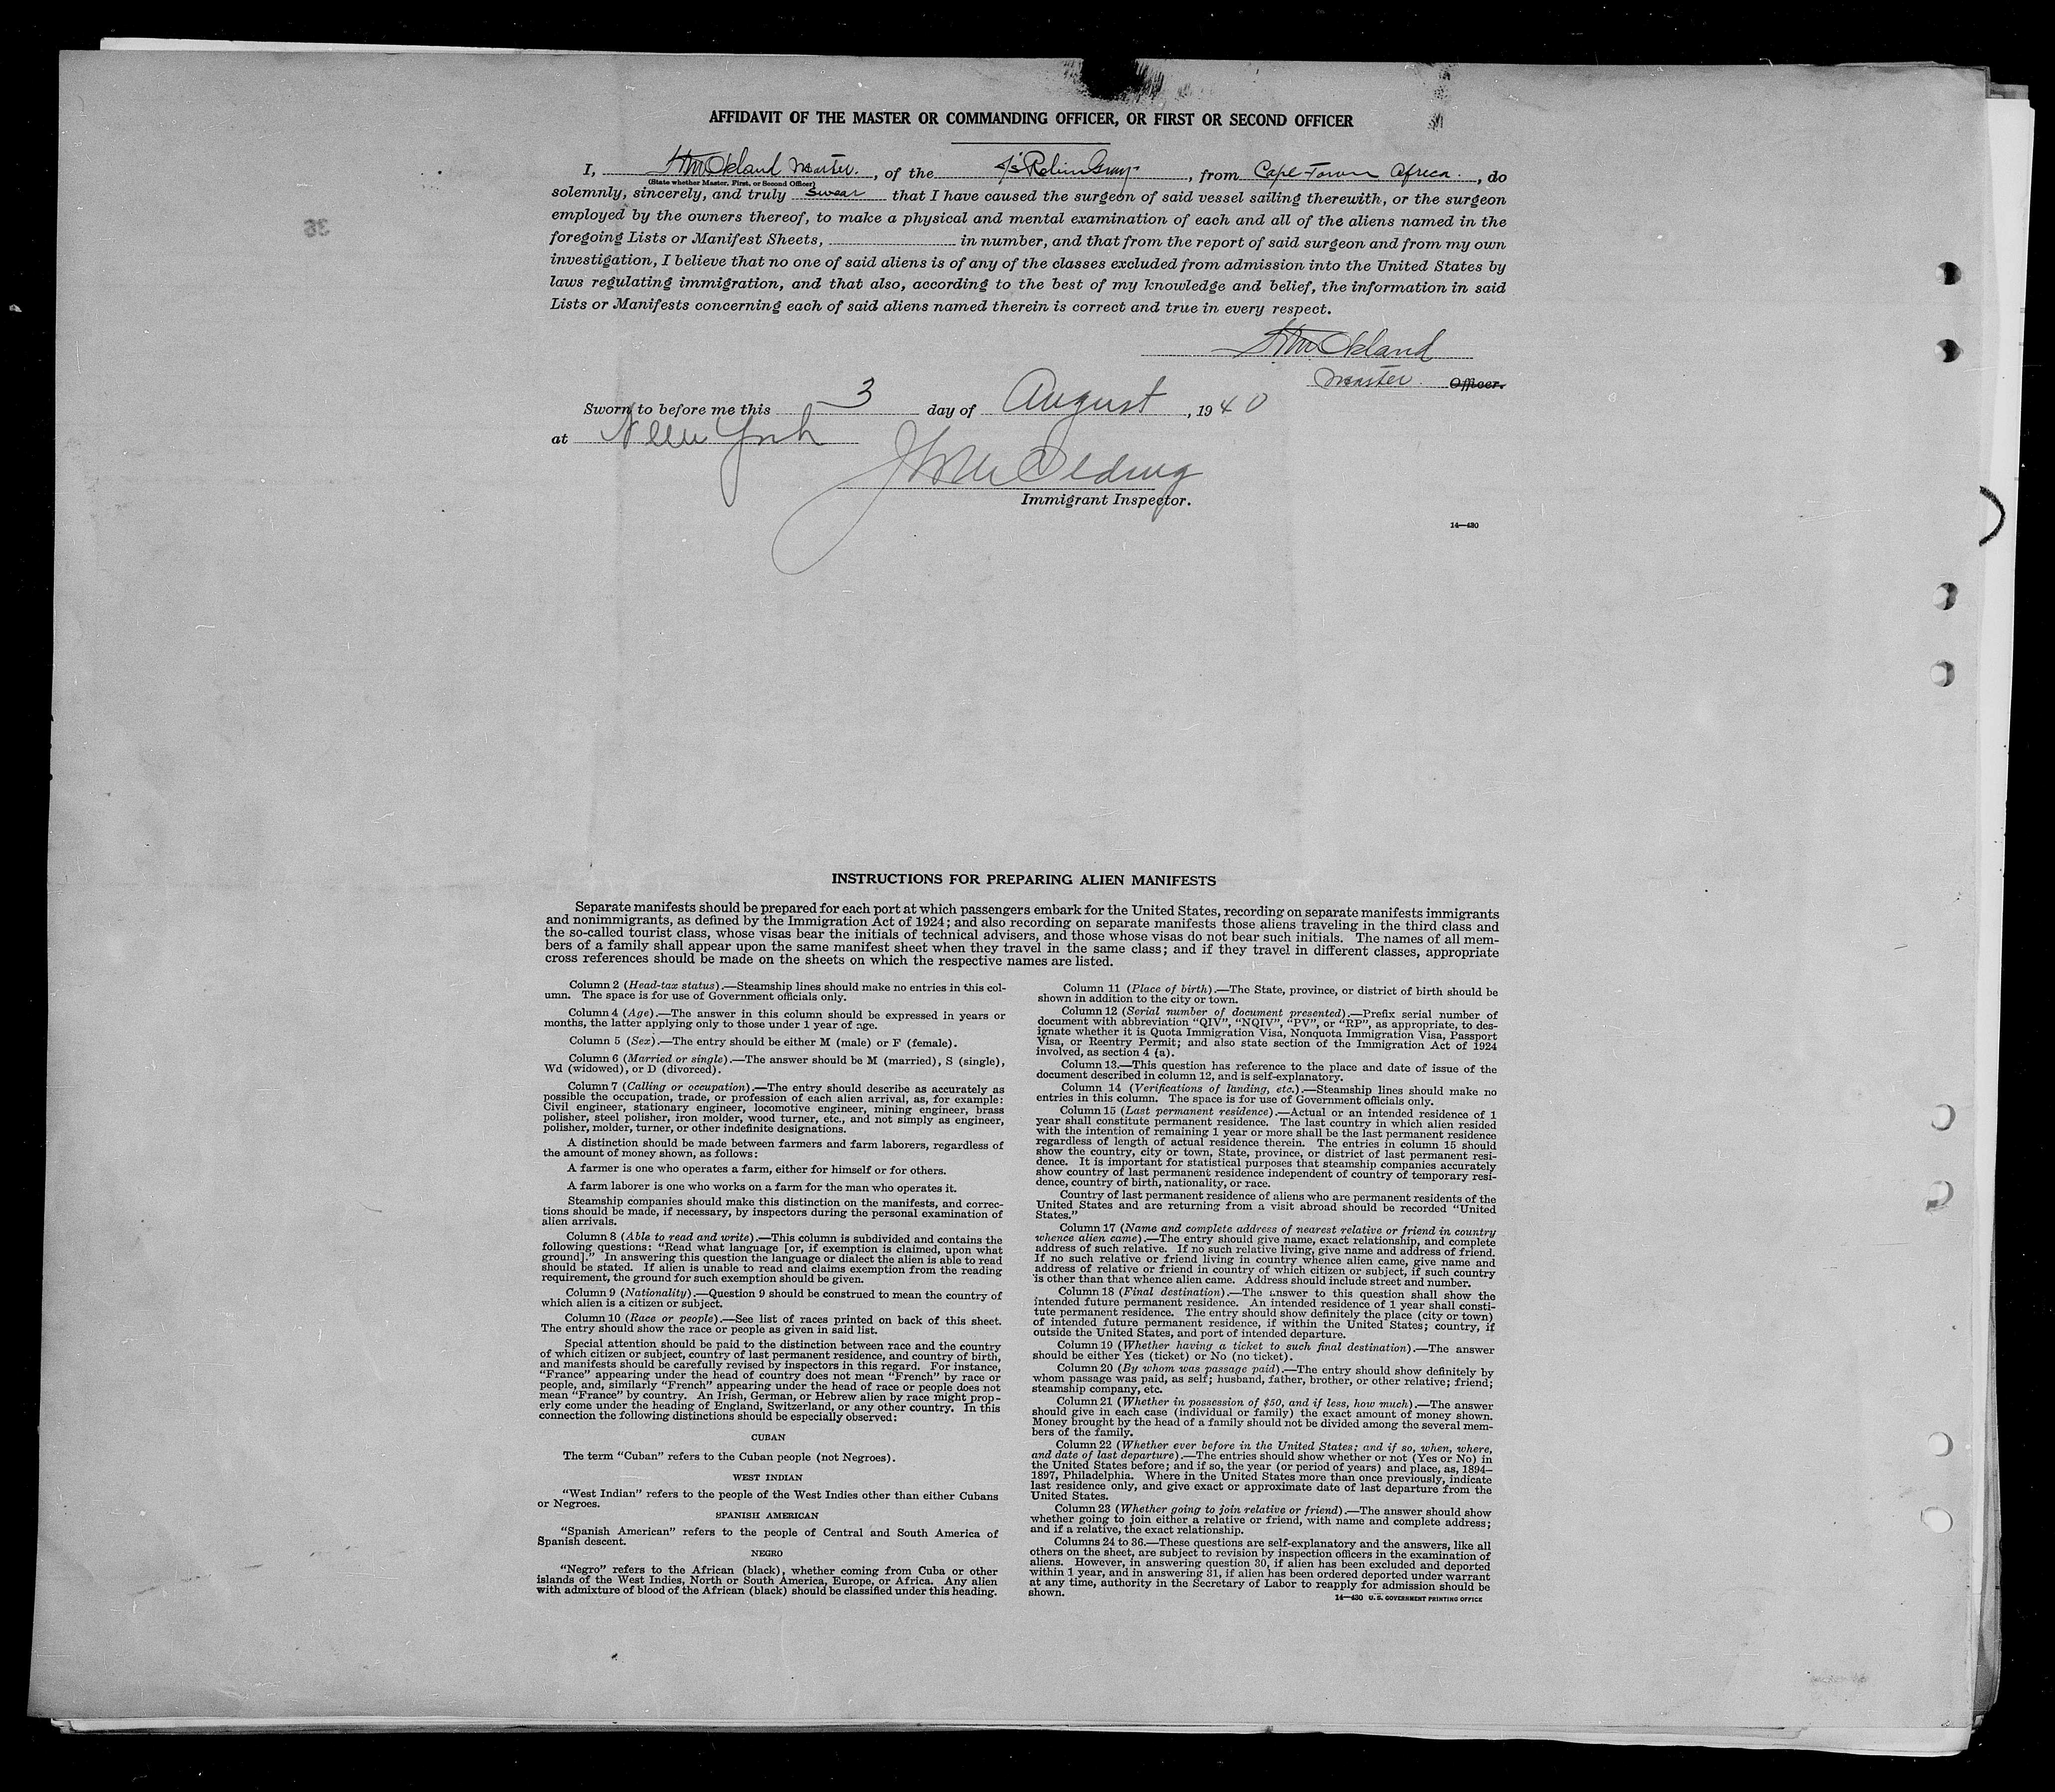 AFFIDAVIT OF THE MASTER OR COMMANDING OFFICER, OR FIRST OR SECOND OFFICER
I, Okland Master, of the S/S Robin Gray, from Cape Town Africa, do
(State whether Master, First, or Second Officer)
solemnly, sincerely, and truly swear that I have caused the surgeon of said vessel sailing therewith, or the surgeon
employed by the owners thereof, to make a physical and mental examination of each and all of the aliens named in the
foregoing Lists or Manifest Sheets, in number, and that from the report of said surgeon and from my own
investigation, I believe that no one of said aliens is of any of the classes excluded from admission into the United States by
laws regulating immigration, and that also, according to the best of my knowledge and belief, the information in said
Lists or Manifests concerning each of said aliens named therein is correct and true in every respect.
Okland
Master. Officer.
Sworn to before me this 3 day of August, 1940
at New York
Immigrant Inspector.
14—430
36
INSTRUCTIONS FOR PREPARING ALIEN MANIFESTS
Separate manifests should be prepared for each port at which passengers embark for the United States, recording on separate manifests immigrants
and nonimmigrants, as defined by the Immigration Act of 1924; and also recording on separate manifests those aliens traveling in the third class and
the so-called tourist class, whose visas bear the initials of technical advisers, and those whose visas do not bear such initials. The names of all mem-
bers of a family shall appear upon the same manifest sheet when they travel in the same class; and if they travel in different classes, appropriate
cross references should be made on the sheets on which the respective names are listed.
Column 2 (Head-tax status).—Steamship lines should make no entries in this col-
umn. The space is for use of Government officials only.
Column 4 (Age).—The answer in this column should be expressed in years or
months, the latter applying only to those under 1 year of age.
Column 5 (Sex).—The entry should be either M (male) or F (female).
Column 6 (Married or single).—The answer should be M (married), S (single),
Wd (widowed), or D (divorced).
Column 7 (Calling or occupation).—The entry should describe as accurately as
possible the occupation, trade, or profession of each alien arrival, as, for example:
Civil engineer, stationary engineer, locomotive engineer, mining engineer, brass
polisher, steel polisher, iron molder, wood turner, etc., and not simply as engineer,
polisher, molder, turner, or other indefinite designations.
A distinction should be made between farmers and farm laborers, regardless of
the amount of money shown, as follows:
A farmer is one who operates a farm, either for himself or for others.
A farm laborer is one who works on a farm for the man who operates it.
Steamship companies should make this distinction on the manifests, and correc-
tions should be made, if necessary, by inspectors during the personal examination of
alien arrivals.
Column 8 (Able to read and write).—This column is subdivided and contains the
following questions: "Read what language [or, if exemption is claimed, upon what
ground]." In answering this question the language or dialect the alien is able to read
should be stated. If alien is unable to read and claims exemption from the reading
requirement, the ground for such exemption should be given.
Column 9 (Nationality).—Question 9 should be construed to mean the country of
which alien is a citizen or subject.
Column 10 (Race or people).—See list of races printed on back of this sheet.
The entry should show the race or people as given in said list.
Special attention should be paid to the distinction between race and the country
of which citizen or subject, country of last permanent residence, and country of birth,
and manifests should be carefully revised by inspectors in this regard. For instance,
"France" appearing under the head of country does not mean "French" by race or
people, and, similarly "French" appearing under the head of race or people does not
mean "France" by country. An Irish, German, or Hebrew alien by race might prop-
erly come under the heading of England, Switzerland, or any other country. In this
connection the following distinctions should be especially observed:
CUBAN
The term "Cuban" refers to the Cuban people (not Negroes).
WEST INDIAN
"West Indian" refers to the people of the West Indies other than either Cubans
or Negroes.
SPANISH AMERICAN
"Spanish American" refers to the people of Central and South America of
Spanish descent.
NEGRO
"Negro" refers to the African (black), whether coming from Cuba or other
islands of the West Indies, North or South America, Europe, or Africa. Any alien
with admixture of blood of the African (black) should be classified under this heading.
Column 11 (Place of birth).—The State, province, or district of birth should be
shown in addition to the city or town.
Column 12 (Serial number of document presented).—Prefix serial number of
document with abbreviation "QIV", "NQIV", "PV", or "RP", as appropriate, to des-
ignate whether it is Quota Immigration Visa, Nonquota Immigration Visa, Passport
Visa, or Reentry Permit; and also state section of the Immigration Act of 1924
involved, as section 4 (a).
Column 13.—This question has reference to the place and date of issue of the
document described in column 12, and is self-explanatory.
Column 14 (Verifications of landing, etc.).—Steamship lines should make no
entries in this column. The space is for use of Government officials only.
Column 15 (Last permanent residence).—Actual or an intended residence of 1
year shall constitute permanent residence. The last country in which alien resided
with the intention of remaining 1 year or more shall be the last permanent residence
regardless of length of actual residence therein. The entries in column 15 should
show the country, city or town, State, province, or district of last permanent resi-
dence. It is important for statistical purposes that steamship companies accurately
show country of last permanent residence independent of country of temporary resi-
dence, country of birth, nationality, or race.
Country of last permanent residence of aliens who are permanent residents of the
United States and are returning from a visit abroad should be recorded "United
States."
Column 17 (Name and complete address of nearest relative or friend in country
whence alien came).—The entry should give name, exact relationship, and complete
address of such relative. If no such relative living, give name and address of friend.
If no such relative or friend living in country whence alien came, give name and
address of relative or friend in country of which citizen or subject, if such country
is other than that whence alien came. Address should include street and number.
Column 18 (Final destination).—The answer to this question shall show the
intended future permanent residence. An intended residence of 1 year shall consti-
tute permanent residence. The entry should show definitely the place (city or town)
of intended future permanent residence, if within the United States; country, if
outside the United States, and port of intended departure.
Column 19 (Whether having a ticket to such final destination).—The answer
should be either Yes (ticket) or No (no ticket).
Column 20 (By whom was passage paid).—The entry should show definitely by
whom passage was paid, as self; husband, father, brother, or other relative; friend;
steamship company, etc.
Column 21 (Whether in possession of $50, and if less, how much).—The answer
should give in each case (individual or family) the exact amount of money shown.
Money brought by the head of a family should not be divided among the several mem-
bers of the family.
Column 22 (Whether ever before in the United States; and if so, when, where,
and date of last departure).—The entries should show whether or not (Yes or No) in
the United States before; and if so, the year (or period of years) and place, as, 1894–
1897, Philadelphia. Where in the United States more than once previously, indicate
last residence only, and give exact or approximate date of last departure from the
United States.
Column 23 (Whether going to join relative or friend).—The answer should show
whether going to join either a relative or friend, with name and complete address;
and if a relative, the exact relationship.
Columns 24 to 36.—These questions are self-explanatory and the answers, like all
others on the sheet, are subject to revision by inspection officers in the examination of
aliens. However, in answering question 30, if alien has been excluded and deported
within 1 year, and in answering 31, if alien has been ordered deported under warrant
at any time, authority in the Secretary of Labor to reapply for admission should be
shown.
14—430 U. S. GOVERNMENT PRINTING OFFICE